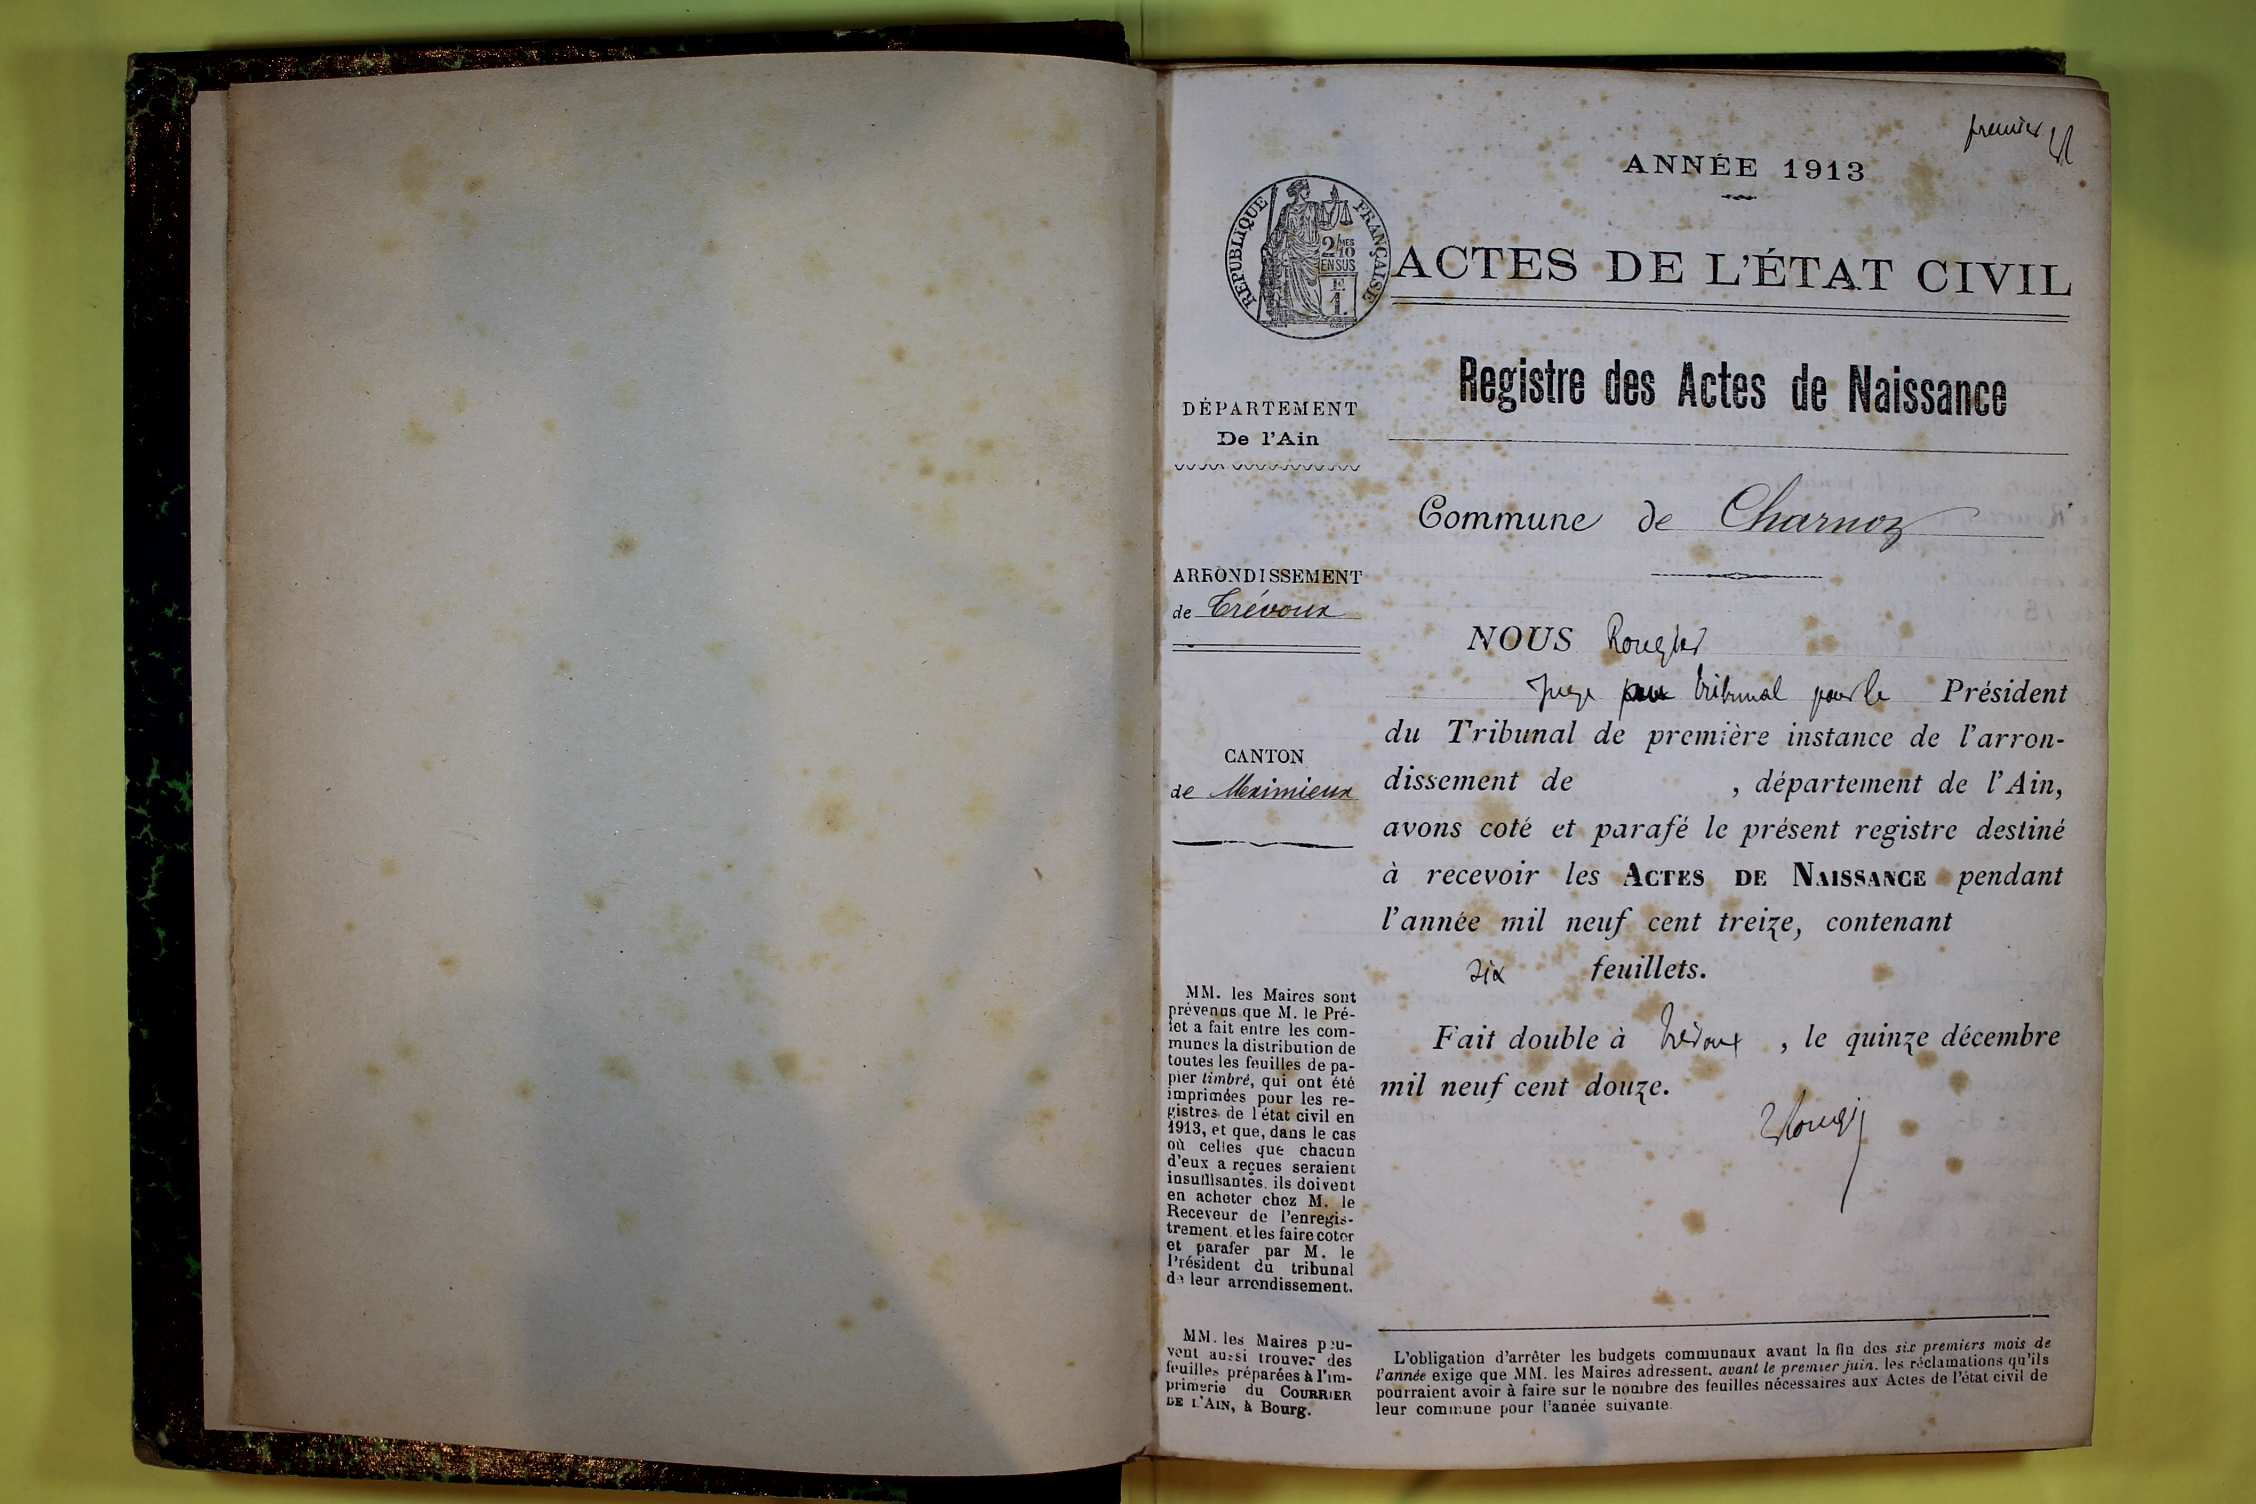 premier
ANNÉE 1913
RÉPUBLIQUE FRANÇAISE
2/MES
10
EN SUS
F
1.
ACTES DE L'ÉTAT CIVIL
Registre des Actes de Naissance
DÉPARTEMENT
De l'Ain
Commune de Charnoz
ARRONDISSEMENT
de Trévoux
CANTON
de Meximieux
NOUS Rougier
Juge tribunal pour le Président
du Tribunal de première instance de l'arron-
dissement de , département de l'Ain,
avons coté et parafé le présent registre destiné
à recevoir les ACTES DE NAISSANCE pendant
l'année mil neuf cent treize, contenant
six feuillets.
Fait double à Trévoux , le quinze décembre
mil neuf cent douze.
MM. les Maires sont
prévenus que M. le Pré-
fet a fait entre les com-
munes la distribution de
toutes les feuilles de pa-
pier timbré, qui ont été
imprimées pour les re-
gistres de l'état civil en
1913, et que, dans le cas
où celles que chacun
d'eux a reçues seraient
insuffisantes, ils doivent
en acheter chez M. le
Receveur de l'enregis-
trement et les faire coter
et parafer par M. le
Président du tribunal
de leur arrondissement.
MM. les Maires peu-
vent aussi trouver des
feuilles préparées à l'im-
primerie du COURRIER
DE L'AIN, à Bourg.
L'obligation d'arrêter les budgets communaux avant la fin des six premiers mois de
l'année exige que MM. les Maires adressent, avant le premier juin, les réclamations qu'ils
pourraient avoir à faire sur le nombre des feuilles nécessaires aux Actes de l'état civil de
leur commune pour l'année suivante.